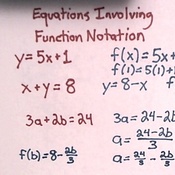 Equations Involving
Function Notation
y=5x+1
f(x)=5x+
f(1)=5(1)+
x+y=8
y=8-x f
3a+2b=24
3a=24-2b
a=24-2b/3
f(b)=8-2b/3
a=24/3-2b/3